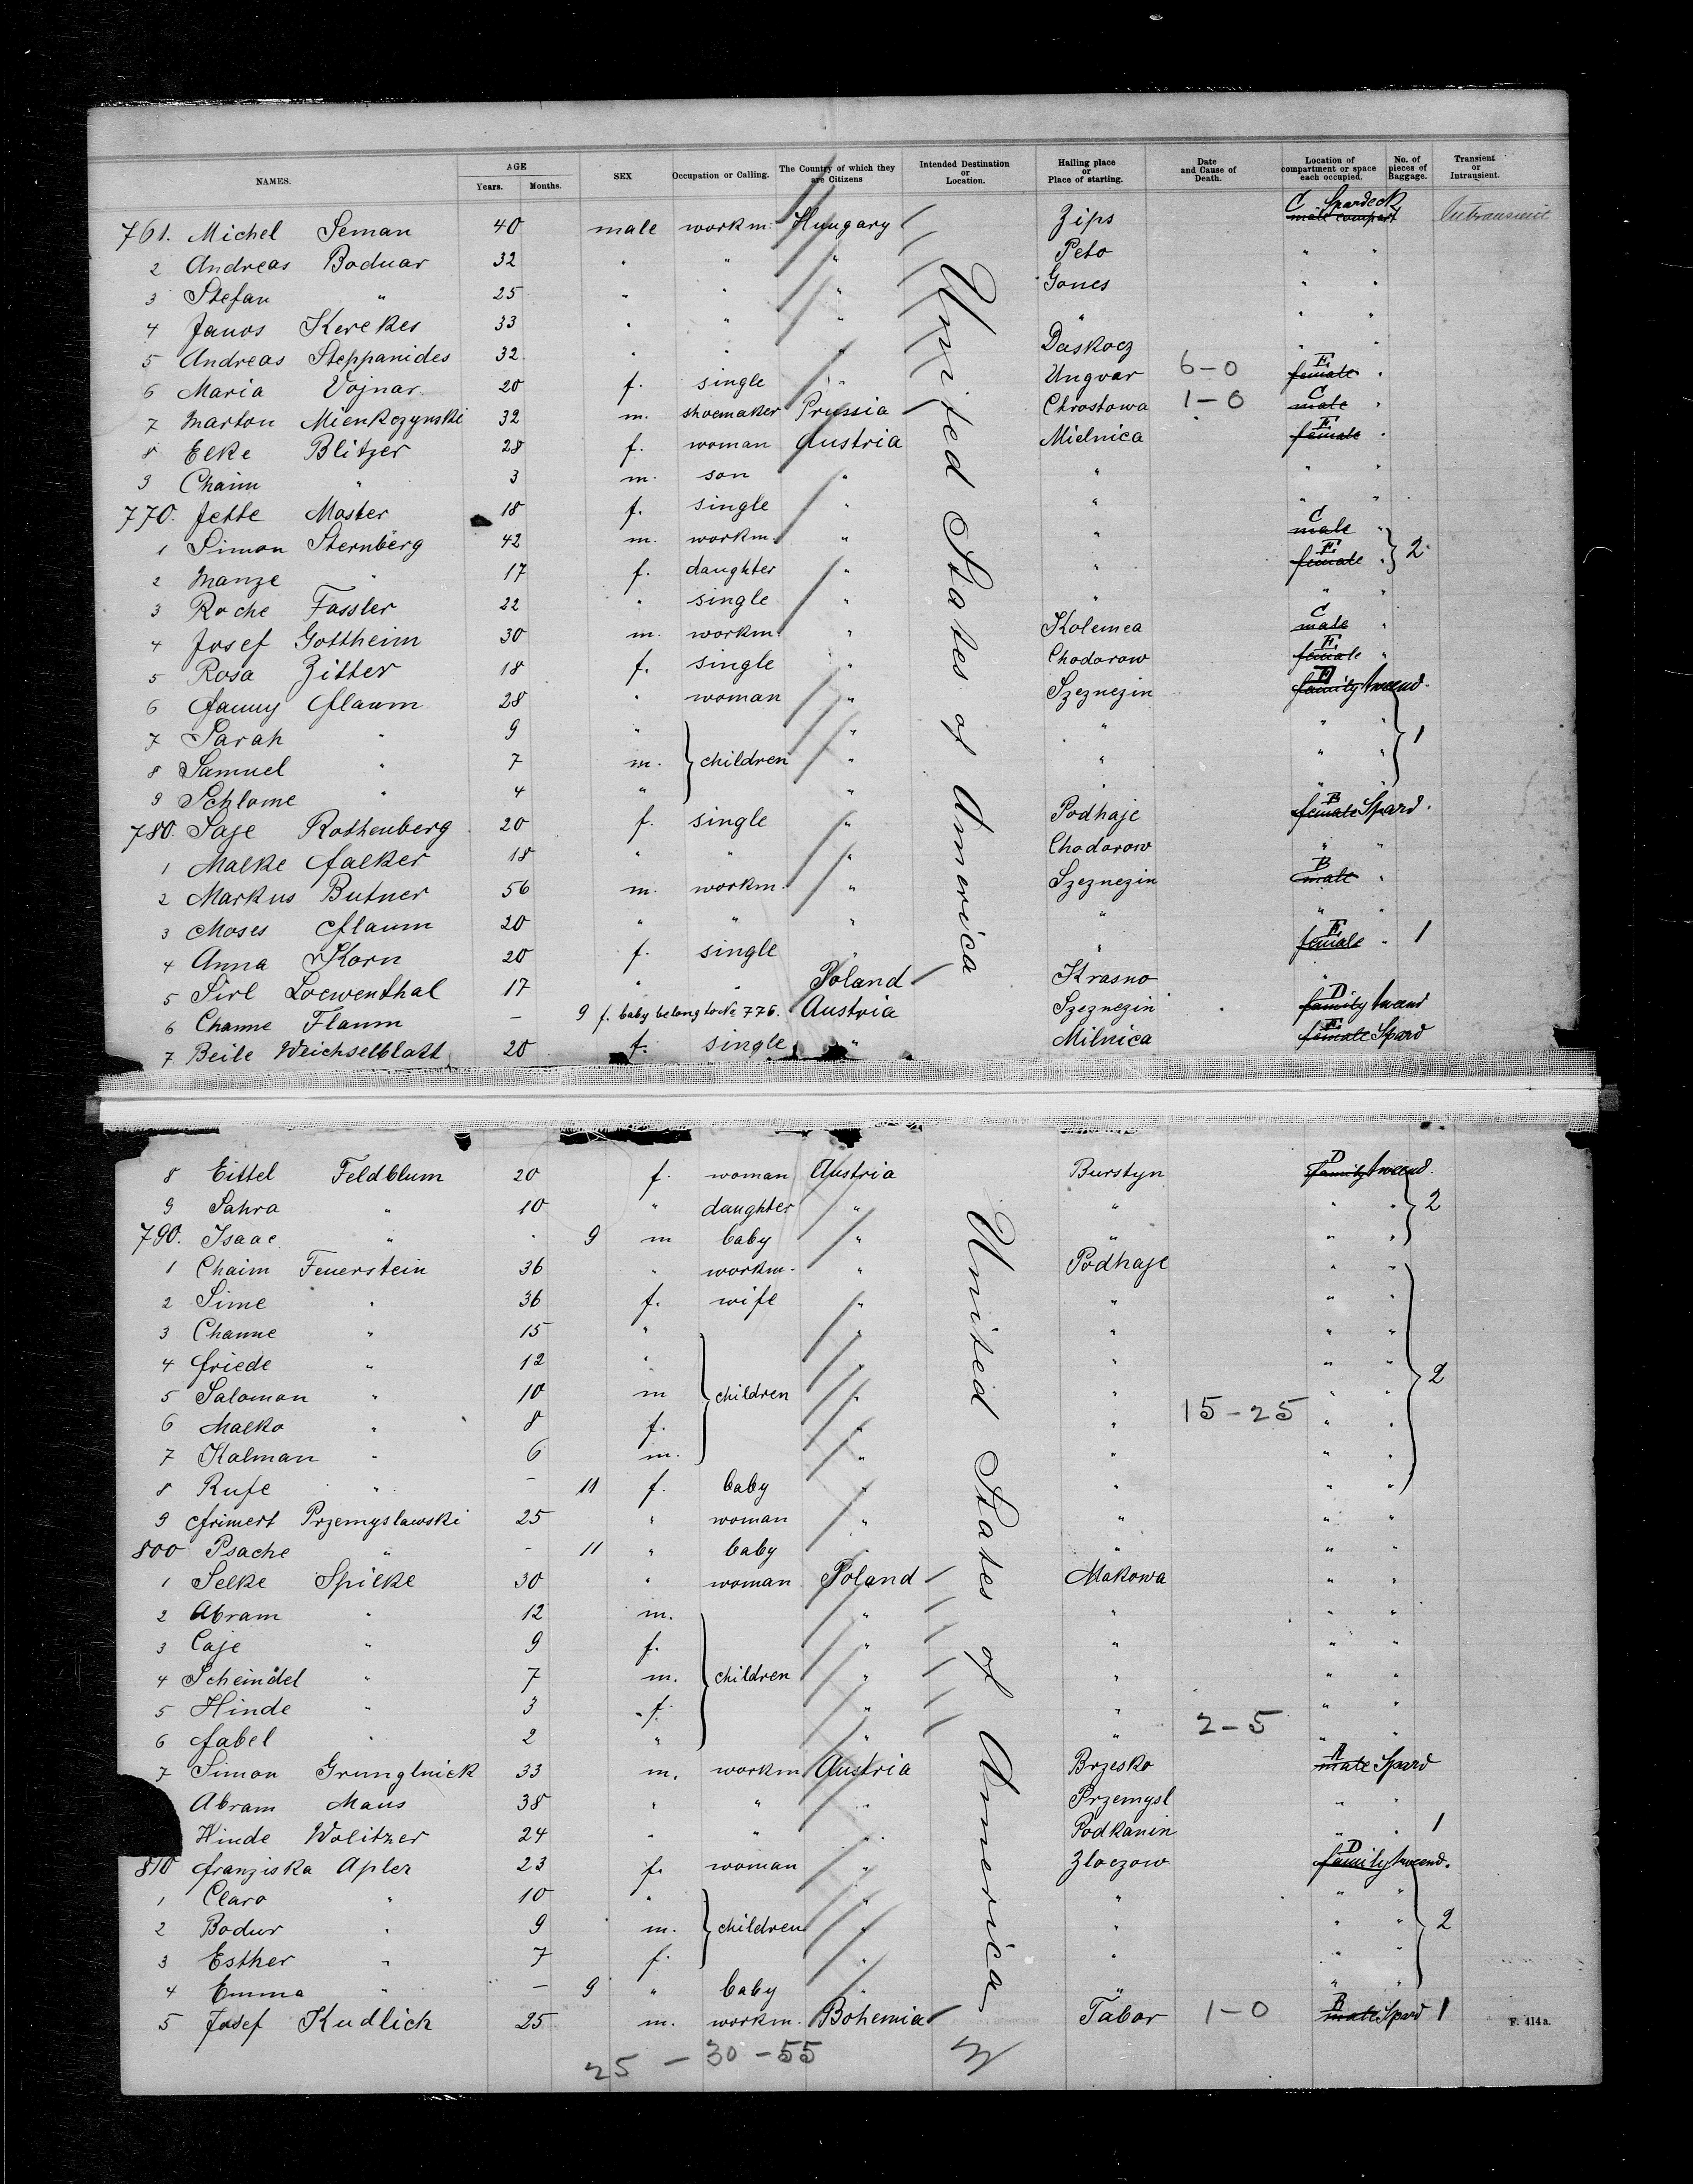 NAMES. AGE Years. Months. SEX Occupation or Calling. The Country of which they are Citizens Intended Destination or Location. Hailing place or Place of starting. Date and Cause of Death. Location of compartment or space each occupied. No. of pieces of Baggage. Transient or Intransient.
761. Michel Seman 40 male workm. Hungary Zips C Spardeck male compart
2 Andreas Boduar 32 " " " Peto " "
3 Stefan " 25 " " " Gones " "
4 Janos Kerekes 33 " " " " " "
5 Andreas Steppanides 32 " " " Daskocz " "
6 Maria Vojnar 20 f. single " Ungvar 6-0 E female "
7 Marton Mienkozynski 32 m. shoemaker Prussia Chrostowa 1-0 C male "
8 Elke Blitzer 28 f. woman Austria Mielnica E female "
9 Chaim " 3 m. son " " " "
770. Jette Moster 18 f. single " " " "
1 Simon Sternberg 42 m. workm. " " C male "
2 Manze " 17 f. daughter " " E female " 2
3 Roche Fassler 22 " single " " " "
4 Josef Gottheim 30 m. workm. " Kolemea C male "
5 Rosa Zitter 18 f. single " Chodorow E female "
6 Fanny Flaum 28 " woman " Szeznezin D family tweend.
7 Sarah " 9 " " " " " 1
8 Samuel " 7 m. children " " " "
9 Schlome " 4 " " " "
780. Saje Rothenberg 20 f. single " Podhaje B female Spard.
1 Malke Falker 18 " " " Chodorow " "
2 Markus Butner 56 m. workm. " Szeznezin B male "
3 Moses Flaum 20 " " " " " "
4 Anna Korn 20 f. single " " E female " 1
5 Sirl Loewenthal 17 " " Poland Krasno "
6 Channe Flaum - 9 f. baby belong to No 776. Austria Szeznezin D family tweend
7 Beile Weichselblatt 20 f. single " Milnica E female Spard
United States of America
8 Eittel Feldblum 20 f. woman Austria Burstyn D family tweend.
9 Sahra " 10 " daughter " " " " 2
790. Isaac " - 9 m baby " " " "
1 Chaim Feuerstein 36 " workm. " Podhaje " "
2 Sime " 36 f. wife " " " "
3 Channe " 15 " " " " "
4 Friede " 12 " " " " "
5 Salomon " 10 m children " " " " 2
6 Malko " 8 f. " " 15-25 " "
7 Kalman " 6 m. " " " "
8 Rufe " - 11 f. baby " " " "
9 Frimert Przemyslawski 25 " woman " " " "
800 Psache " - 11 " baby " " " "
1 Selke Spilke 30 " woman Poland Makowa " "
2 Abram " 12 m. " " " "
3 Caje " 9 f. " " " "
4 Scheindel " 7 m. children " " " "
5 Hinde " 3 f. " " " "
6 Fabel " 2 " " " 2-5 " "
7 Simon Grunglnick 33 m. workm Austria Brzesko A male Spard
Abram Maus 38 " " " Przemysl " "
Hinde Wolitzer 24 " " " Podkanin " " 1
810 Franziska Apler 23 f. woman " Zloczow D family tweend.
1 Clara " 10 " " " " "
2 Bodur " 9 m. children " " " " 2
3 Esther " 7 f. " " " "
4 Emma " - 9 " baby " " " "
5 Josef Kudlich 25 m. workm. Bohemia Tabor 1-0 B male Spard 1
United States of America
25 - 30 - 55
F. 414 a.